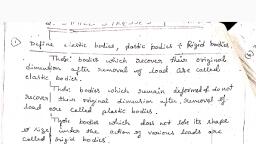 ① Define elastic bodies, plastic bodies & Rigid bodies.
Those bodies which recover their original
dimension after removal of load are called
elastic bodies.
Those bodies which remain deformed & do not
recover their original dimension after removal of
load are called plastic bodies.
Those bodies which does not lose its shape
under the action of various loads are
called rigid bodies.